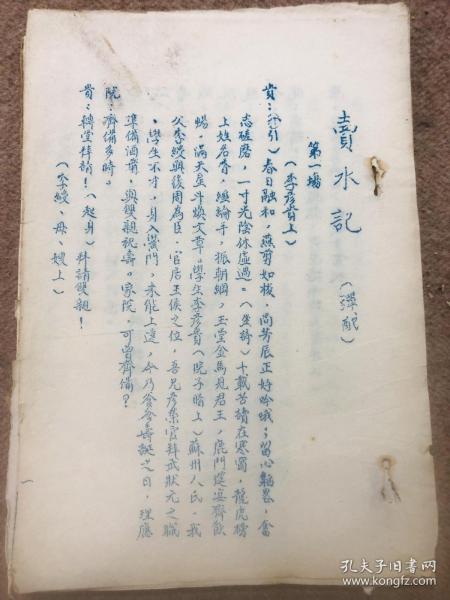 賣水記
（彈配）
第一場
（李彥貴上）
貴：（引）春日融和，燕剪如梭，尚芳辰正好吟哦；留心韜畧，奮
志磋磨，一寸光陰休虛過。（坐詩）十載苦讀在寒窗，龍虎榜
上姓名香，經綸手，振朝綱，玉堂金馬見君王，鹿門選宴齊飲
觴。滿天星斗煥文章。學生李彥貴（院子暗上）蘇州人氏。我
父李綬與後周為臣．官居王侯之位，吾兄彥榮官拜武狀元之職
，學生不才，身入黌門，未能上進，今乃爹爹壽誕之日，理應
準備酒宴，與雙親祝壽。家院，可曾齊備？
院：齊備多時。
貴：轉堂拜請！（起身）拜請雙親！
（李綬、母、嫂上）
一
孔夫子旧书网
www.kongfz.com